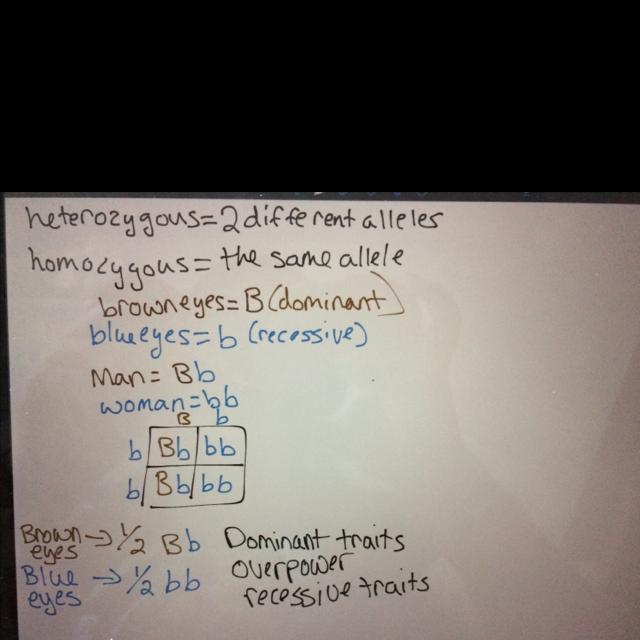 heterozygous=2 different alleles
homozygous= the same allele
brown eyes=B(dominant)
blue eyes=b (recessive)
Man= Bb
woman=bb
B b
b Bb bb
b Bb bb
Brown eyes → 1/2 Bb
Blue eyes → 1/2 bb
Dominant traits
overpower
recessive traits